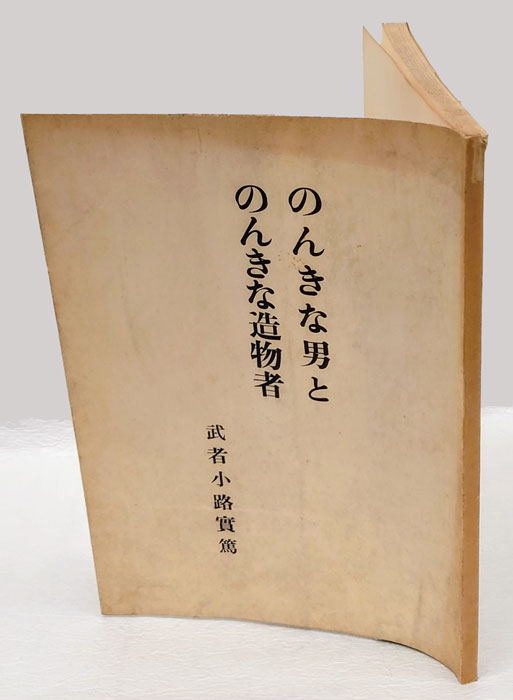 のんきな男と
のんきな造物者
武者小路實篤